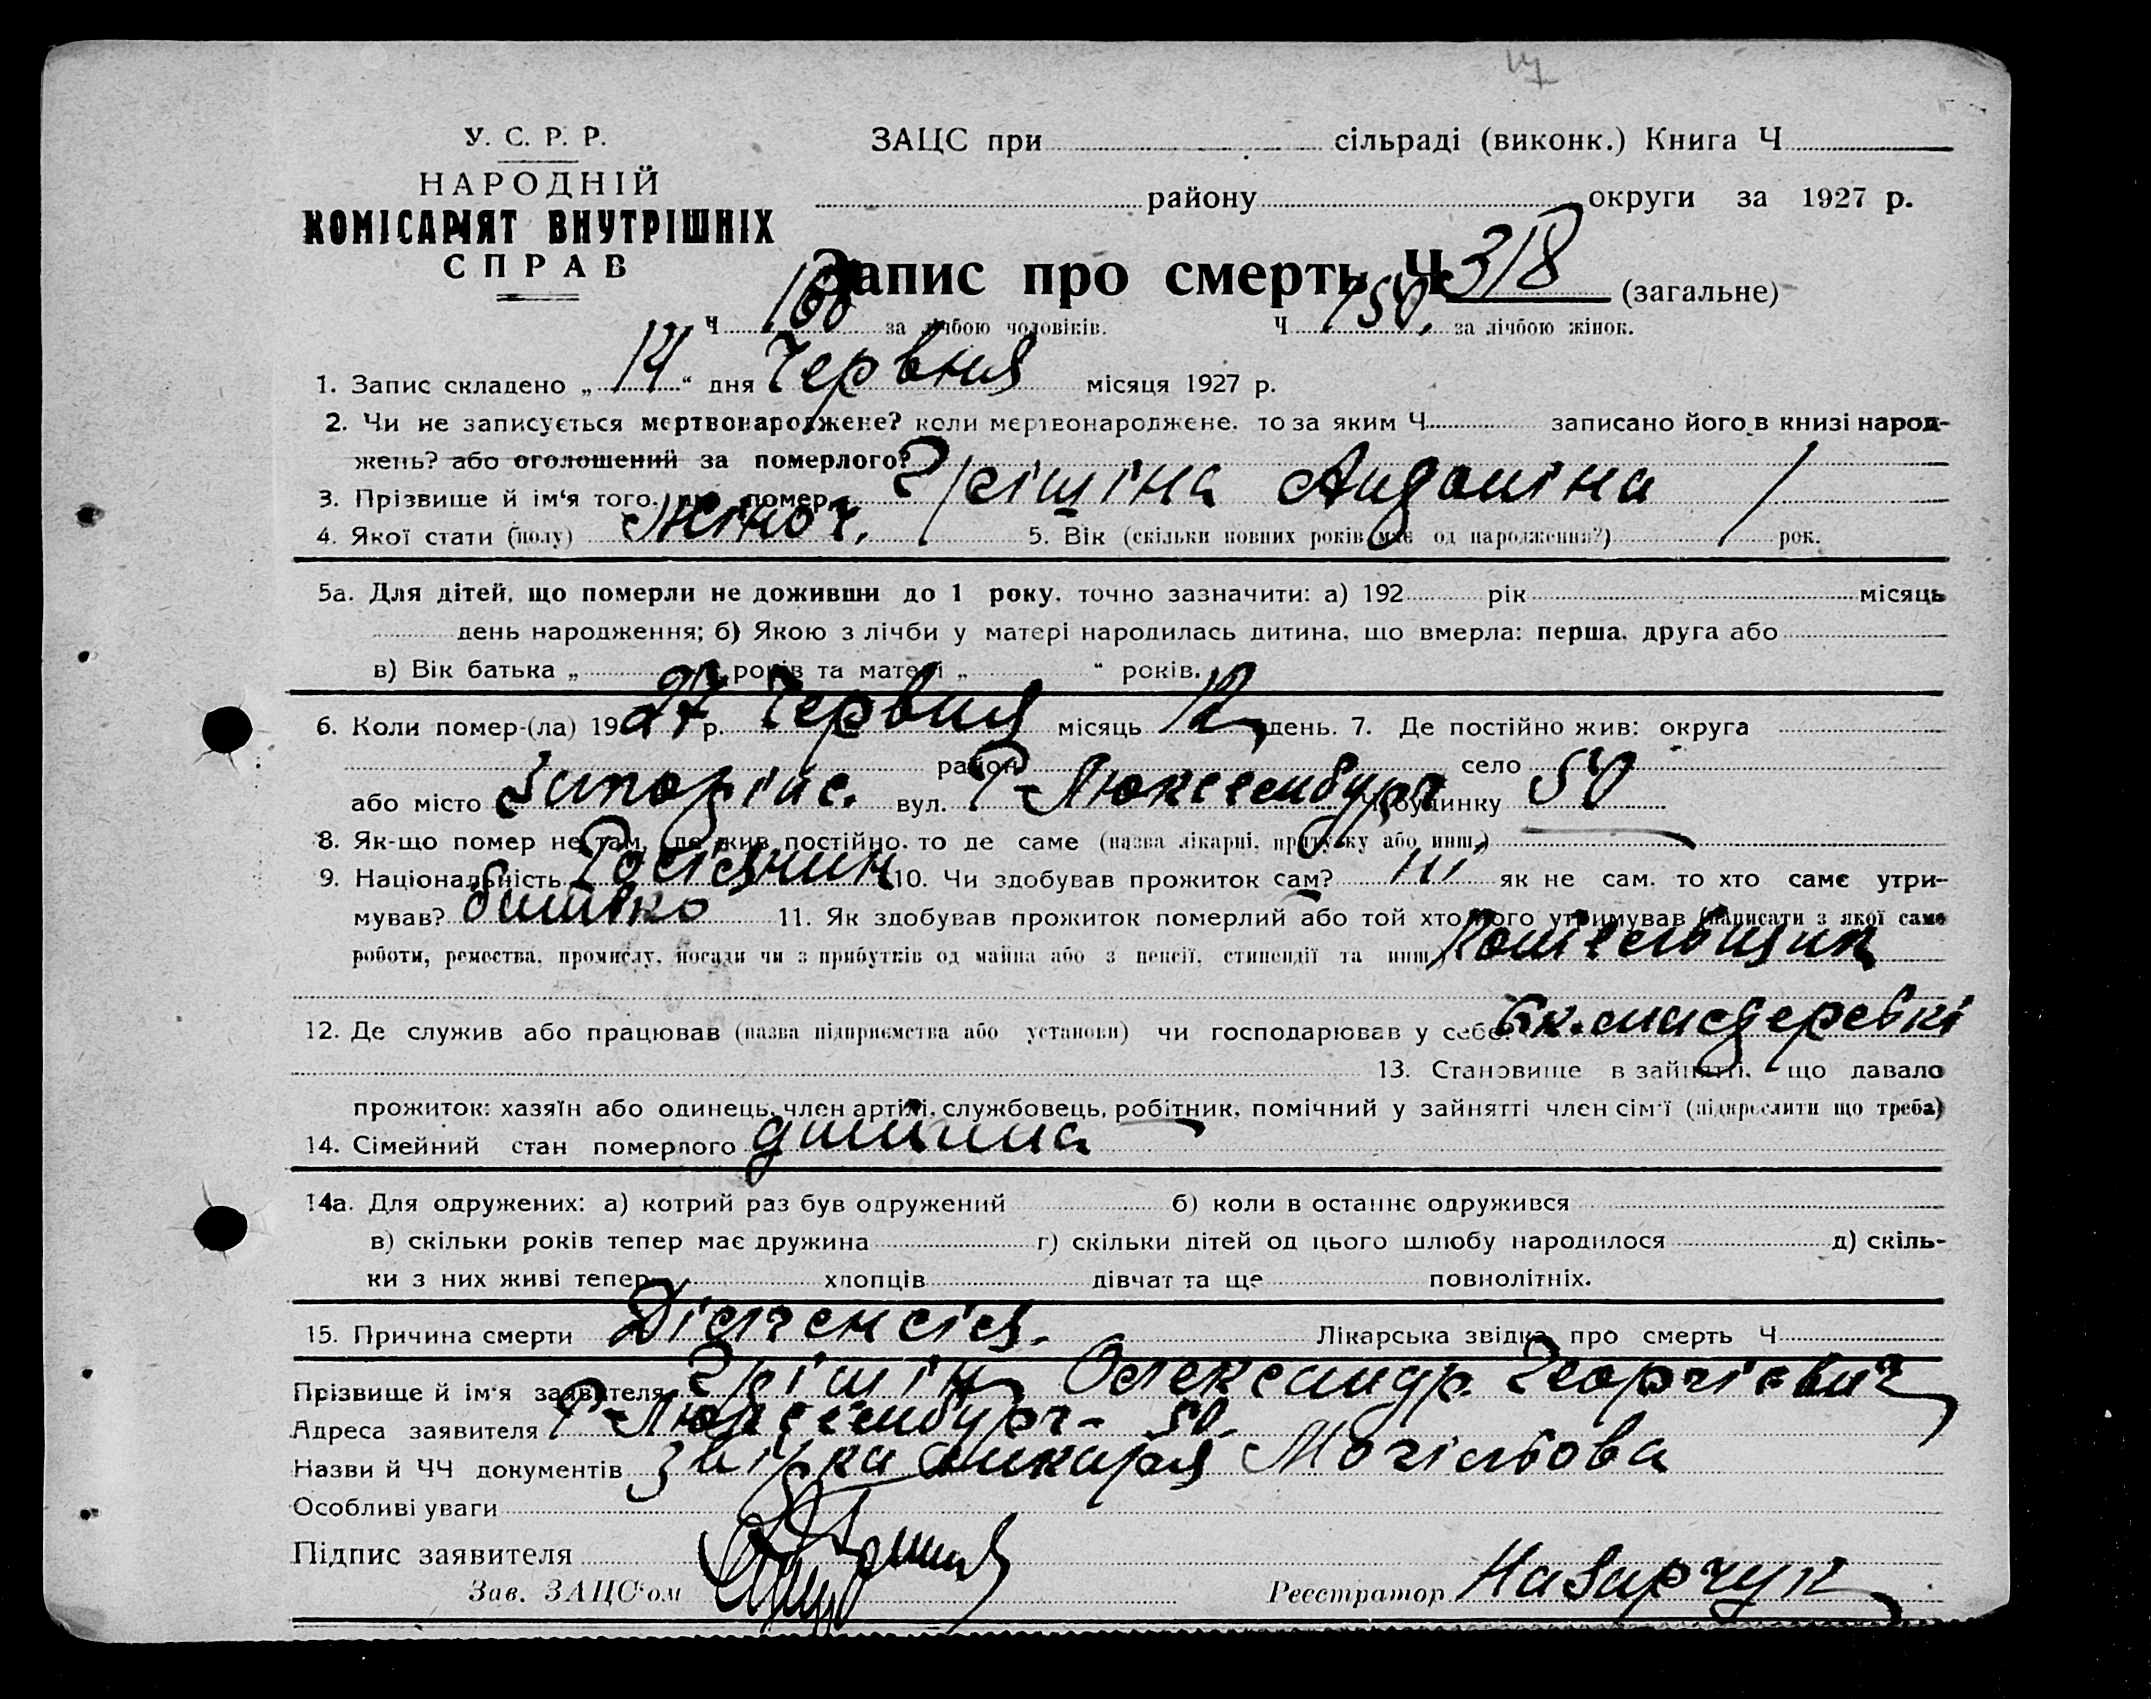 14
У. С. Р. Р.
НАРОДНІЙ
КОМІСАРІЯТ ВНУТРІШНІХ
СПРАВ
ЗАЦС при сільраді (виконк.) Книга Ч
району округи за 1927 р.
Запис про смерть Ч 318 (загальне)
Ч 168 за лічбою чоловіків. Ч 150. за лічбою жінок.
1. Запис складено „14“ дня Червня місяця 1927 р.
2. Чи не записується мертвонароджене? коли мертвонароджене, то за яким Ч записано його в книзі народ-
жень? або оголошений за померлого?
3. Прізвище й ім‘я того, що помер Грішіна Антоніна
4. Якої стати (полу) Жіноч. 5. Вік (скільки повних років має од народження?) 1 рок.
5а. Для дітей, що померли не доживши до 1 року, точно зазначити: а) 192 рік місяць
день народження; б) Якою з лічби у матері народилась дитина, що вмерла: перша, друга або
в) Вік батька „ “ років та матері „ “ років.
6. Коли помер-(ла) 1927 р. Червня місяць 12 день. 7. Де постійно жив: округа
район село
або місто Запоріжс. вул. Р-Люксембург Ч будинку 50
8. Як-що помер не там, де жив постійно, то де саме (назва лікарні, притулку або инш.)
9. Національність Росіянин 10. Чи здобував прожиток сам? ні як не сам, то хто саме утри-
мував? батько 11. Як здобував прожиток померлий або той хто його утримував (написати з якої саме
роботи, ремества, промислу, посади чи з прибутків од майна або з пенсії, стипендії та инш.)
12. Де служив або працював (назва підприємства або установи) чи господарював у себе?
13. Становище в зайнятті, що давало
прожиток: хазяїн або одинець, член артілі, службовець, робітник, помічний у зайнятті член сім‘ї (підкреслити що треба)
14. Сімейний стан померлого дитина
14а. Для одружених: а) котрий раз був одружений б) коли в останнє одружився
в) скільки років тепер має дружина г) скільки дітей од цього шлюбу народилося д) скіль-
ки з них живі тепер хлопців дівчат та ще повнолітніх.
15. Причина смерти Лікарська звідка про смерть Ч
Прізвище й ім‘я заявителя Грішін Олександр Георгієвич
Адреса заявителя Р-Люксембург- 50.
Назви й ЧЧ документів звідка лікаря Могільова
Особливі уваги
Підпис заявителя
Зав. ЗАЦС‘ом Реєстратор Назарчук